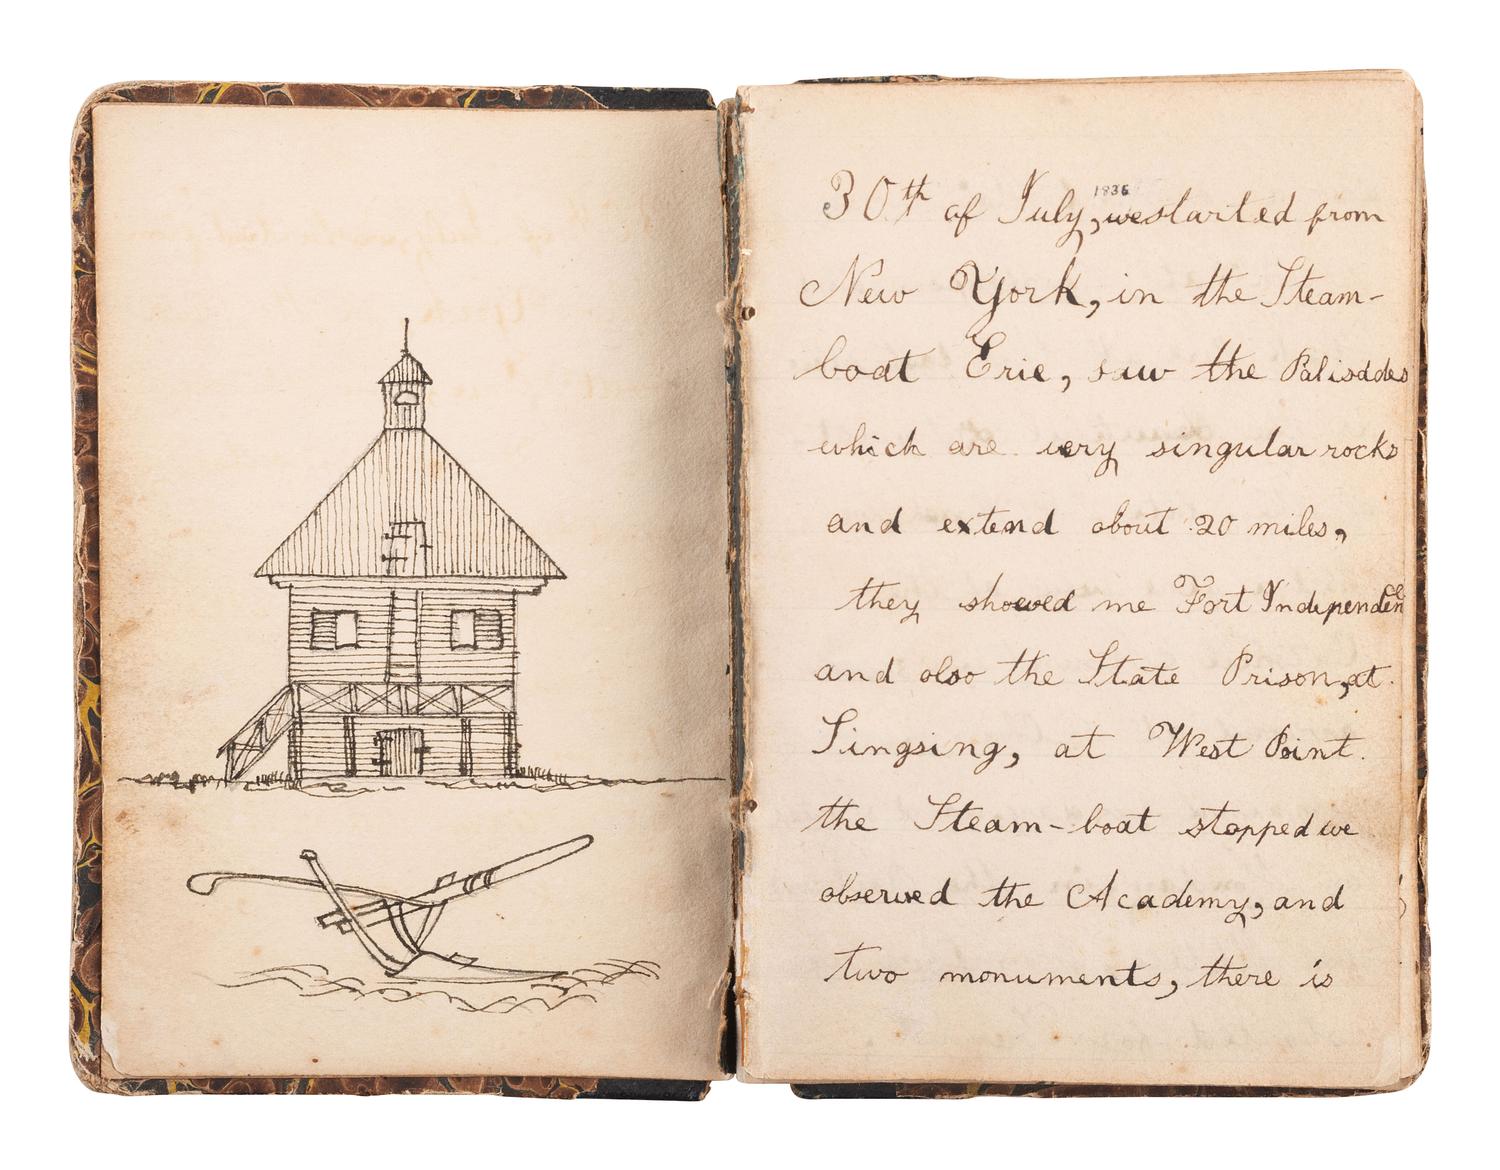 30th of July, 1836 we started from
New York, in the Steam-
boat Erie, saw the Palisddes
which are very singular rocks
and extend about 20 miles,
they showed me Fort Independence
and also the State Prison, at
Singsing, at West Point.
the Steam-boat stopped we
observed the Academy, and
two monuments, there is